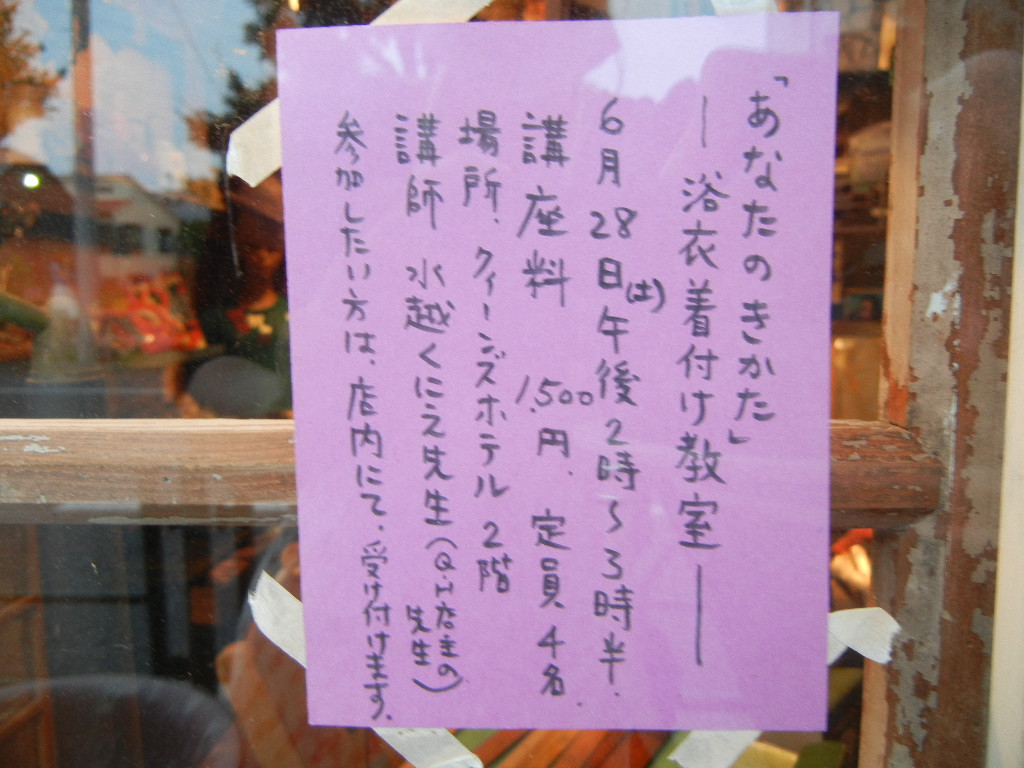 「あなたのきかた」
― 浴衣着付け教室 ―
6月28日(土)午後2時〜3時半.
講座料 1,500円. 定員4名.
場所. クィーンズホテル2階
講師 水越くにえ先生(Q.H店主の先生)
参加したい方は、店内にて、受け付けます.